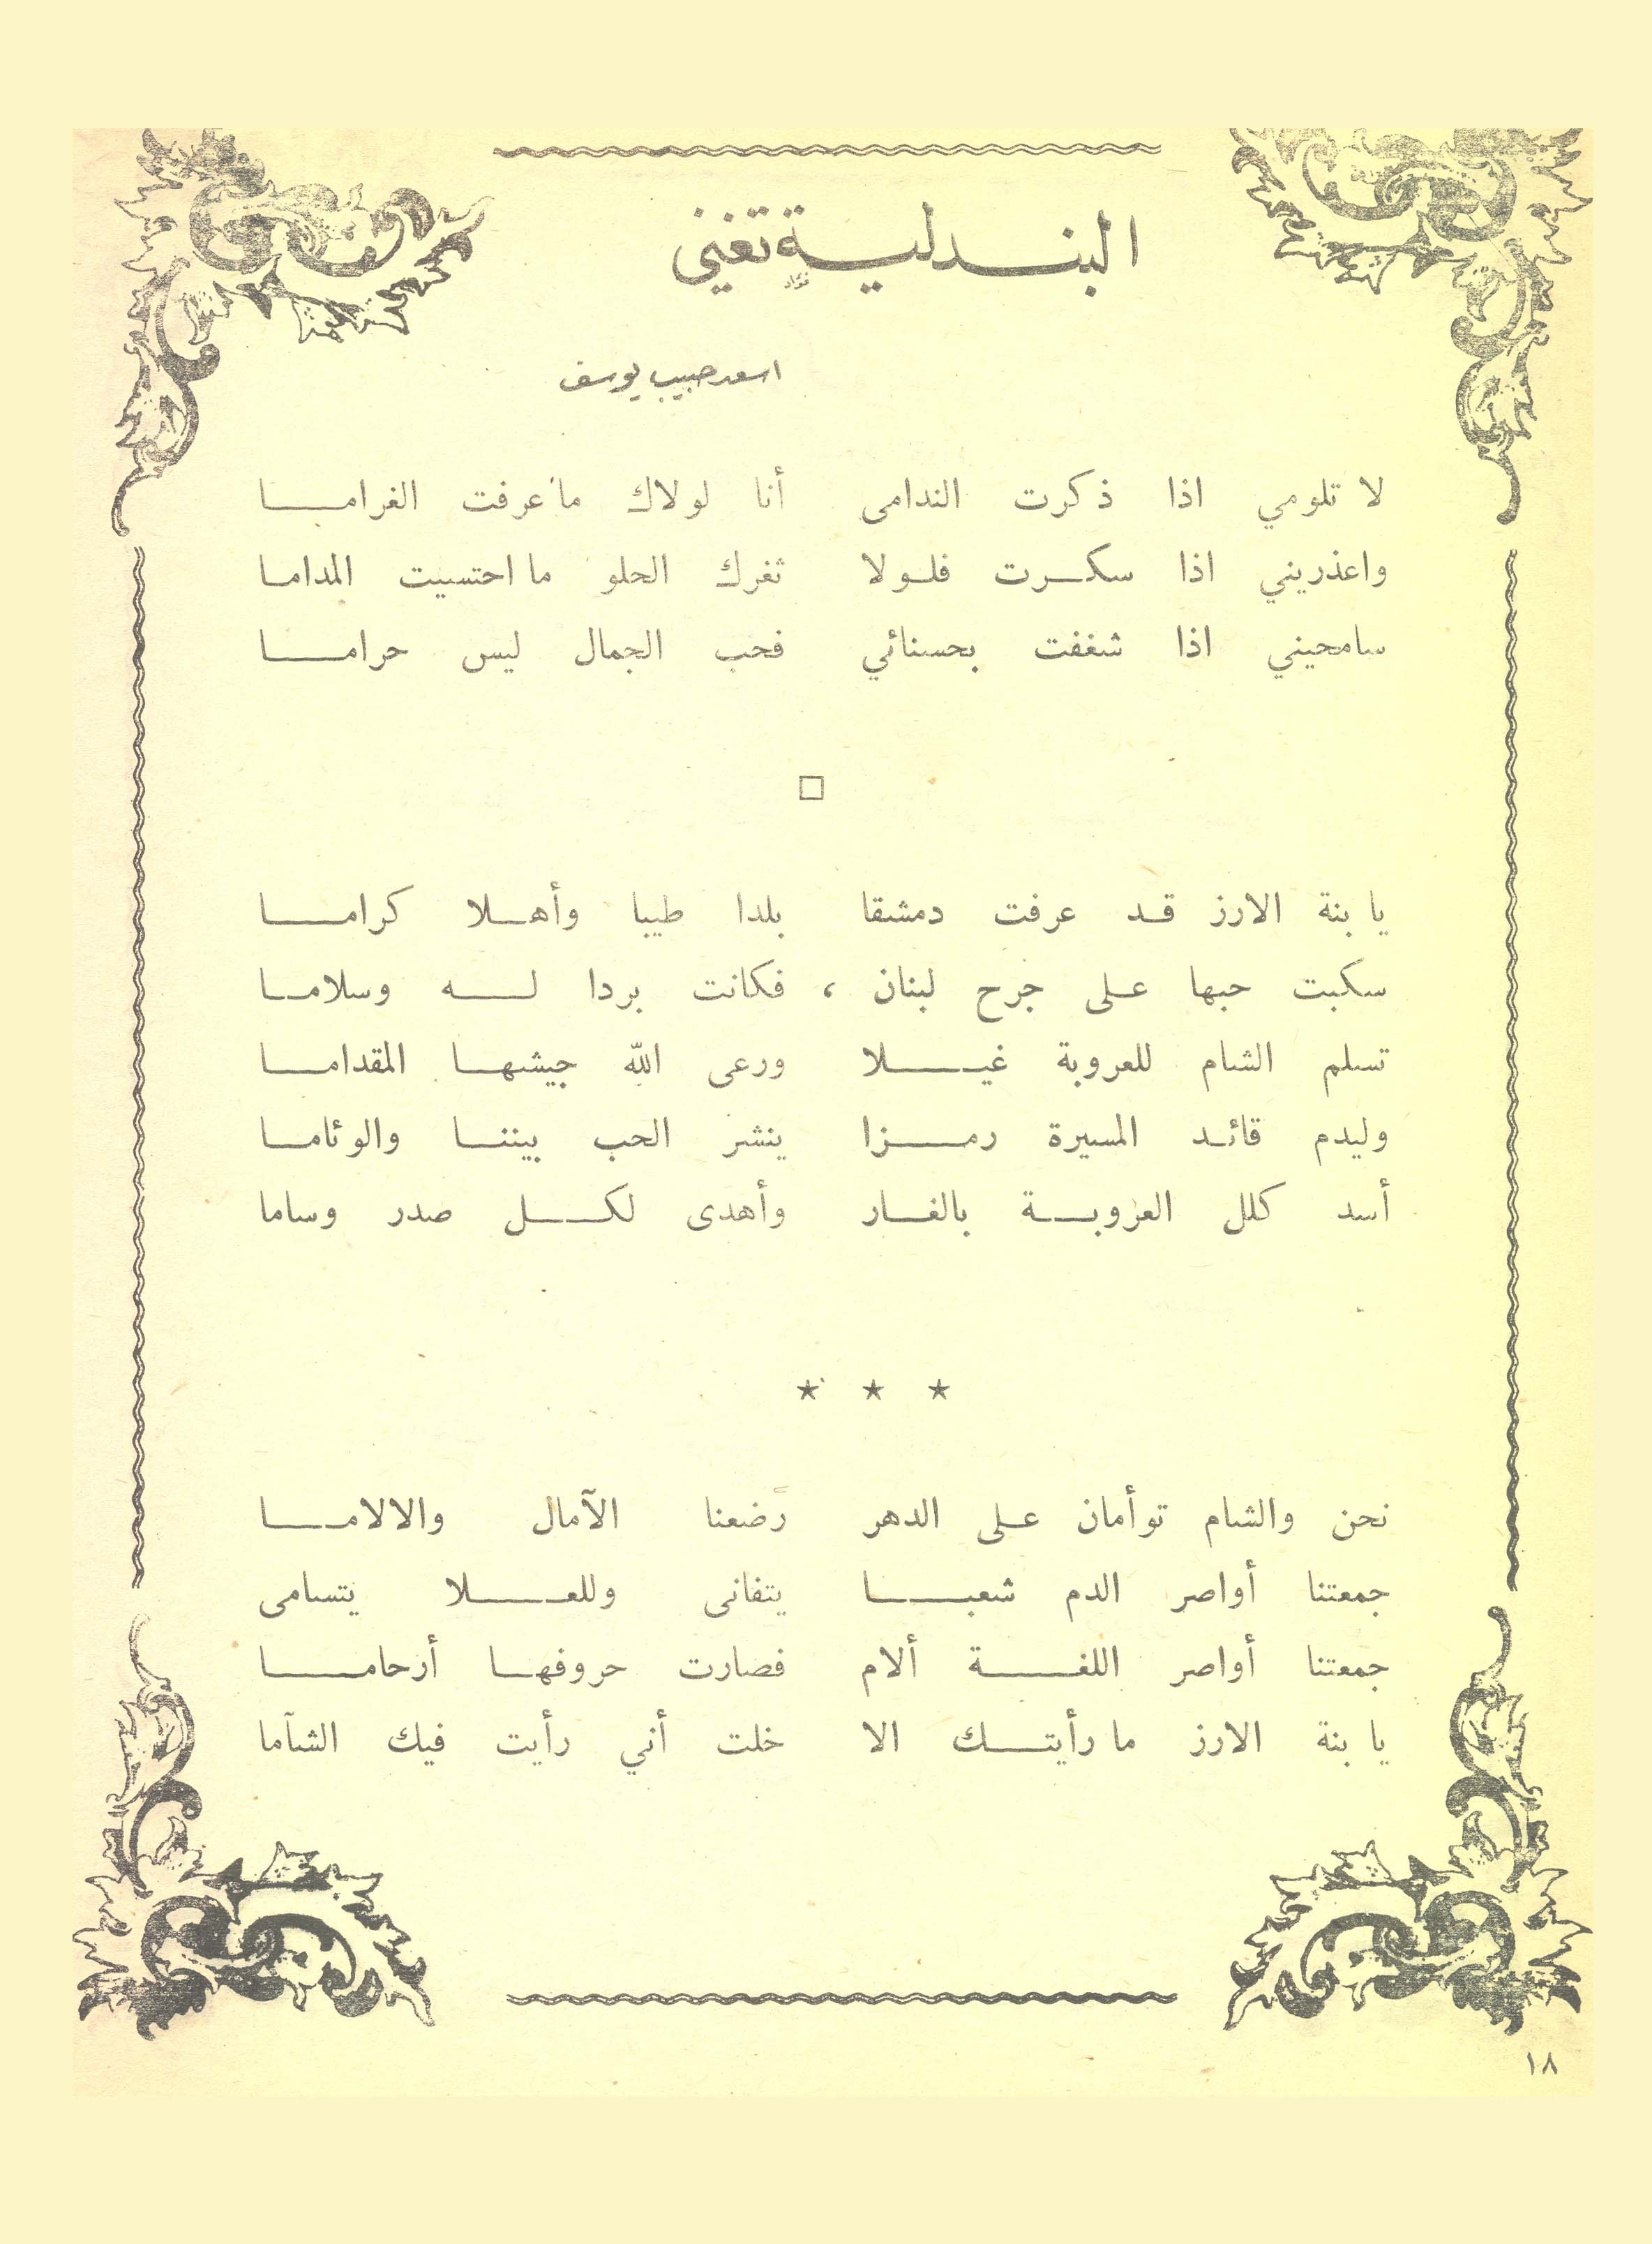 البندلية تغني
اسعد حبيب يوسف
لا تلومي اذا ذكرت الندامى أنا لولاك ما عرفت الغراما
واعذريني اذا سكرت فلولا ثغرك الحلو ما احتسيت المداما
سامحيني اذا شغفت بحسنائي فحب الجمال ليس حراما
يا بنة الارز قد عرفت دمشقا بلدا طيبا وأهلا كراما
سكبت حبها على جرح لبنان ، فكانت بردا له وسلاما
تسلم الشام للعروبة غيلا ورعى الله جيشها المقداما
وليدم قائد المسيرة رمزا ينشر الحب بيننا والوئاما
أسد كلل العروبة بالغار وأهدى لكل صدر وساما
* * *
نحن والشام توأمان على الدهر رضعنا الآمال والالاما
جمعتنا أواصر الدم شعبا يتفانى وللعلا يتسامى
جمعتنا أواصر اللغة ألام فصارت حروفها أرحاما
يا بنة الارز ما رأيتك الا خلت أني رأيت فيك الشآما
١٨